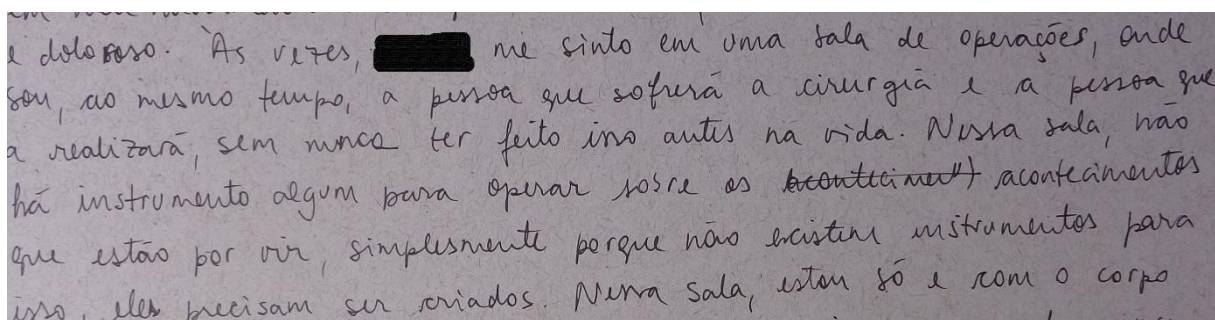 e doloroso. Às vezes, me sinto em uma sala de operações, onde
sou, ao mesmo tempo, a pessoa que sofrerá a cirurgia e a pessoa que
a realizará, sem nunca ter feito isso antes na vida. Nessa sala, não
há instrumento algum para operar sobre os acontecimentos
que estão por vir, simplesmente porque não existem instrumentos para
isso, eles precisam ser criados. Nessa sala, estou só e com o corpo